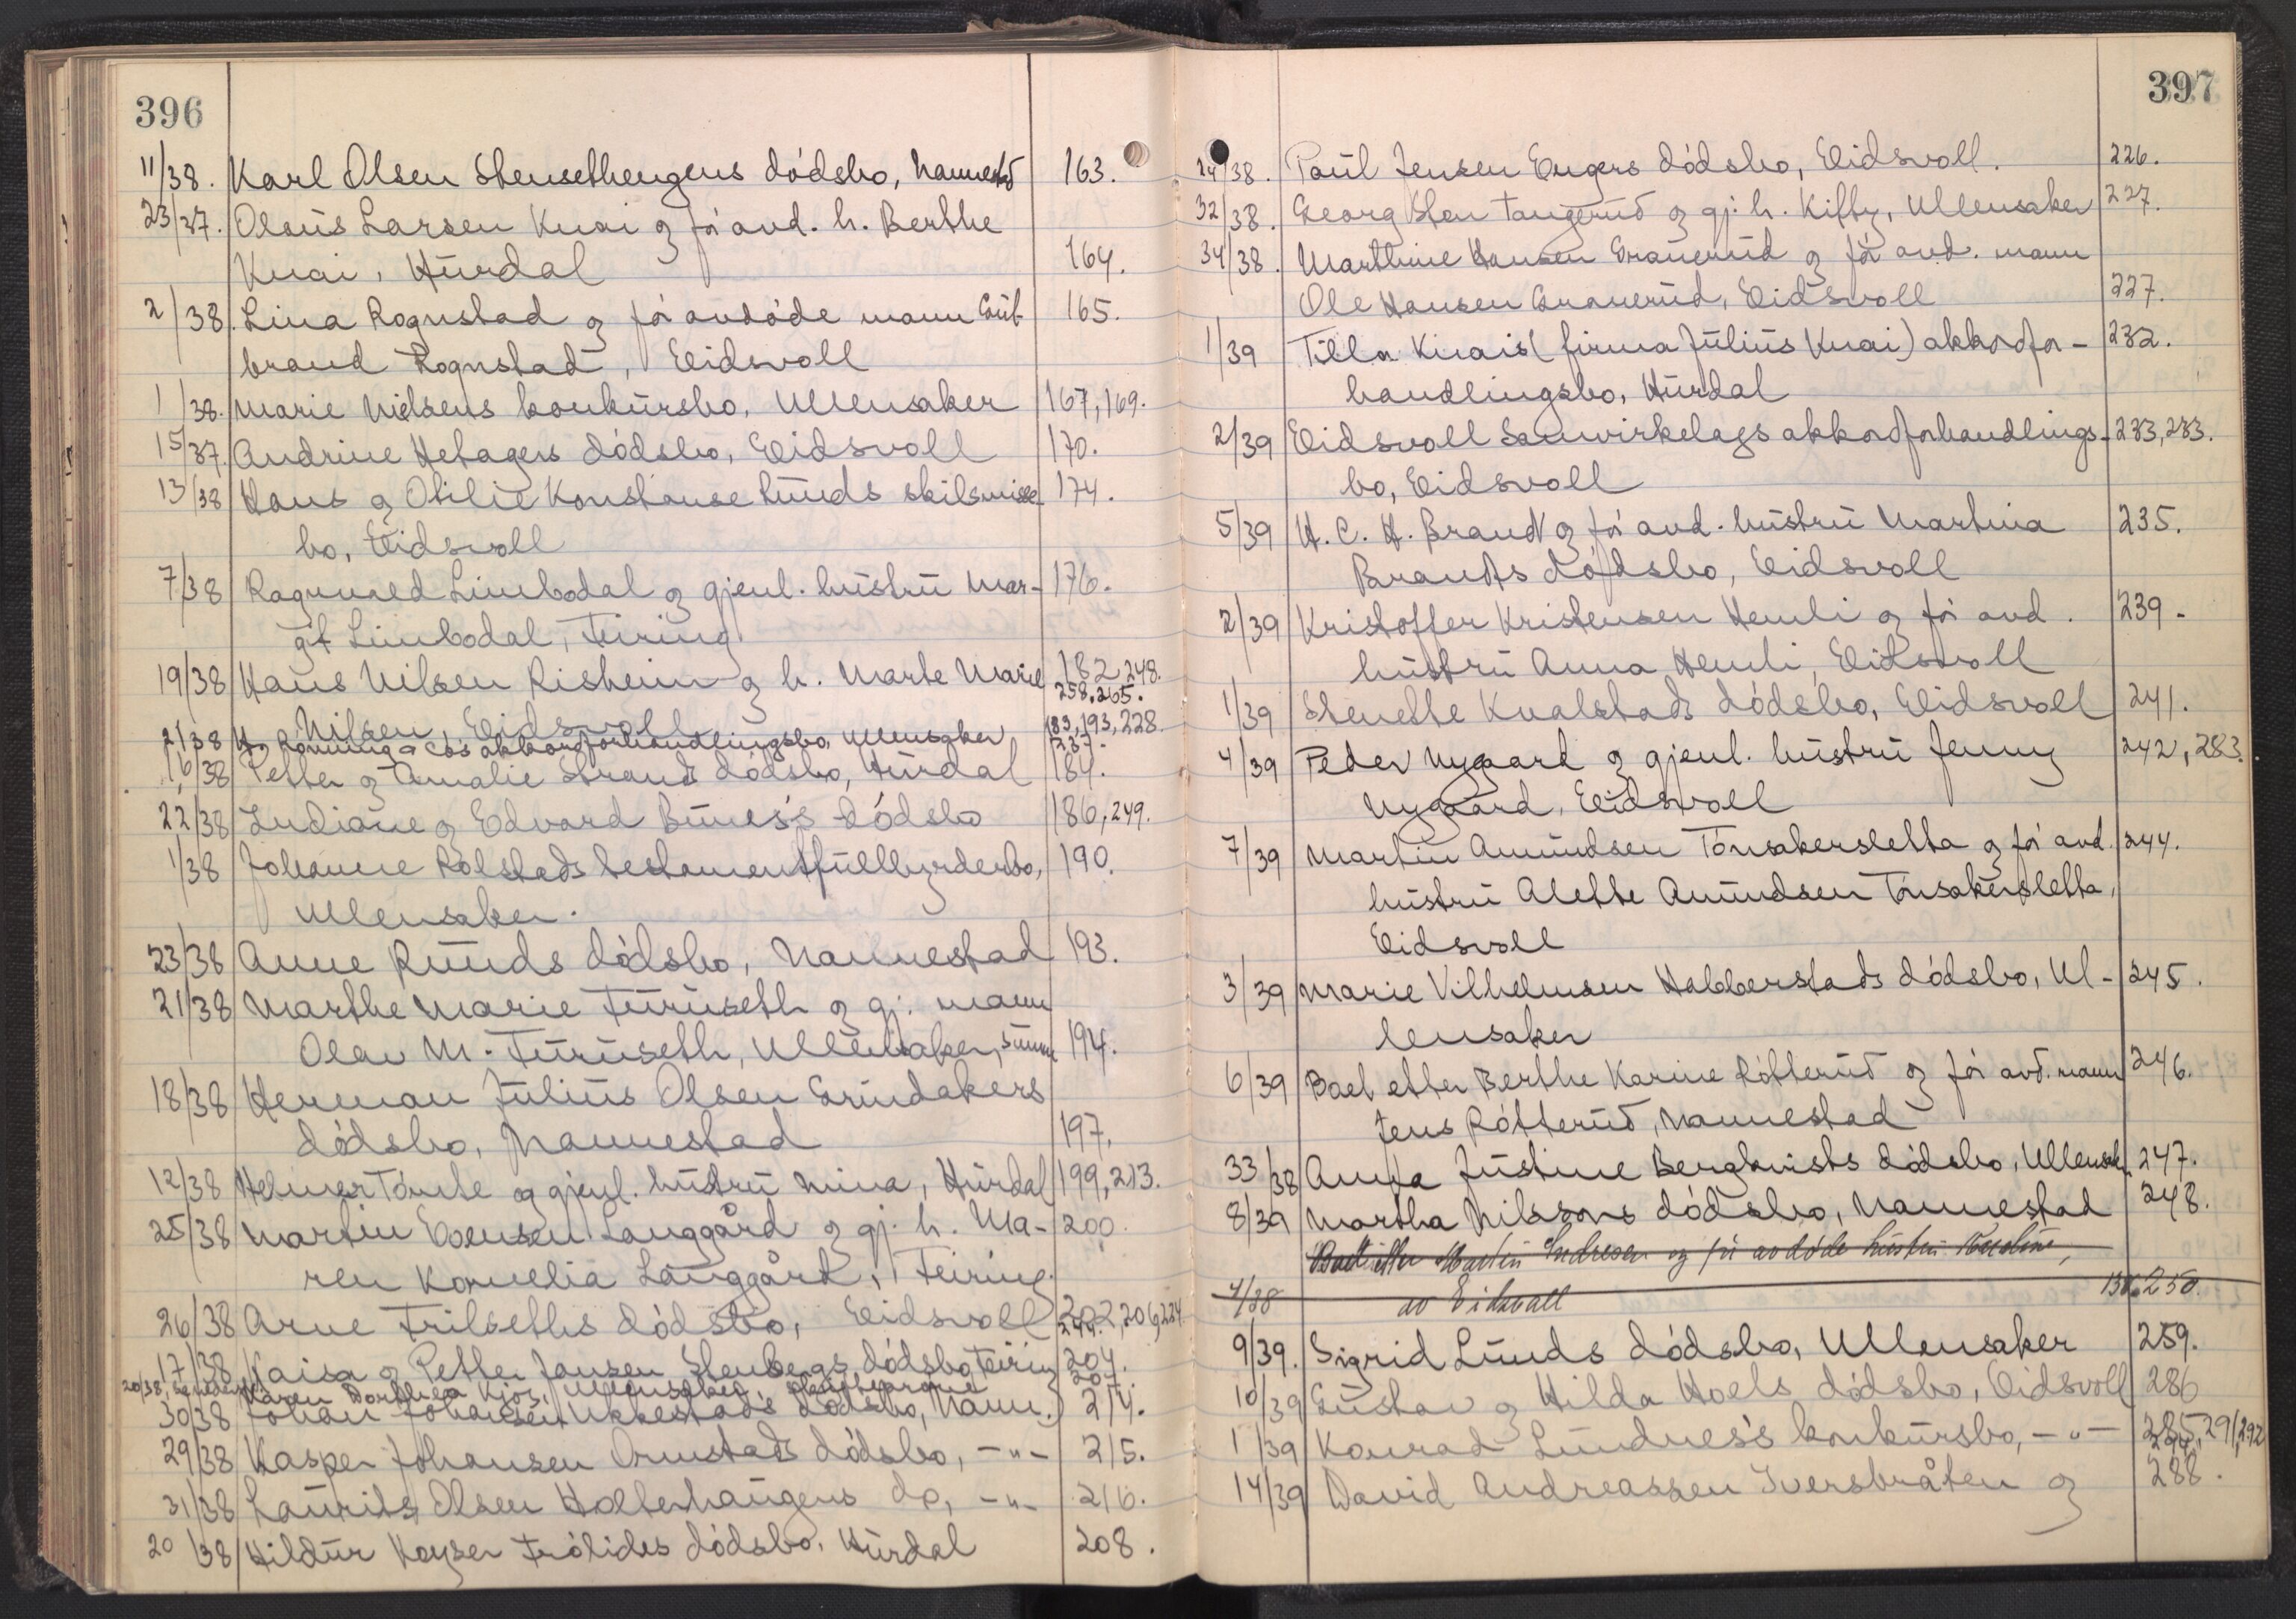 396
11/38. Karl Olsen Stensethengens dódsbo, Nannestd 163.
23/37. Olaüs Larsen Knai og fór avd. h. Berthe
Knai, Hürdal 164.
2/38. Lina Rognstad og fór avdóde mann Gül- 165.
brand Rognstad, Eidsvoll
1/38. Marie Nielsens konkürsbo, Ullensaker 167, 169.
15/37. Andrine Hetagers dódsbo, Eidsvoll 170.
13/38 Hans og Otilie Konstanse Lünds skilsmisse- 174.
bo, Eidsvoll
7/38 Ragnvald Limbodal og gjenl. hüstrü Mar- 176.
git Limbodal, Feiring
19/38 Hans Nilsen Risheim og h. Marte Marie 182, 248.
258, 265.
Nilsen, Eidsvoll
2/38 Rónning & Co's akkordforhandlingsbo, Ullensaker 183, 193, 228.
237.
16/38 Petter og Amalie Strands dódsbo, Hürdal 184.
22/38 Indiane og Edvard Bünes's dódsbo 186, 249.
1/38 Johanne Rolstads testamentfüllbyrderbo, 190.
Ullensaker.
23/38 Anne Rüüds dódsbo, Nannestad 193.
21/38 Marthe Marie Fürüseth og gj. mann
Olav M. Fürüseth, Ullensaker, 194.
18/38 Herman Jülius Olsen Gründakers
dódsbo, Nannestad 197.
12/38 Helmer Tómte og gjenl. hüstrü Mina, Hürdal 199, 213.
25/38 Martin Evensen Langgård og gj. h. Ma- 200.
ren Kornelia Langgård, Feiring.
26/38 Arne Trilseths dódsbo, Eidsvoll 202, 206, 224
244.
17/38 Kaisa og Petter Jansen Stenbergs dódsbo Feiring 204.
20/38, Karen Dorthea Kjos, Ullensaker 207.
30/38 Johan Johansen Ukkestads dódsbo, Nann. 214.
29/38 Kasper Johansen Ormstads dódsbo, -"- 215.
31/38 Laürits Olsen Holterhaugens do, -"- 216.
20/38 Hildür Kayser Trólides dódsbo, Hürdal 208.
397
24/38. Paül Jensen Engers dódsbo, Eidsvoll. 226.
32/38. Georg Sten Tangerüd og gj. h. Kitty, Ullensaker 227.
34/38. Marthine Hansen Granerüd og fór avd. mann
Ole Hansen Granerüd, Eidsvoll 227.
1/39 Tilla Knais (firma Jüliüs Knai) akkordfor- 232.
handlingsbo, Hürdal
2/39 Eidsvoll Samvirkelags akkordforhandlings- 233, 283.
bo, Eidsvoll
5/39 H. C. H. Brandt og fór avd. hüstrü Martina 235.
Brandts dódsbo, Eidsvoll
2/39 Kristoffer Kristensen Hemli og fór avd. 239-
hüstrü Anna Hemli, Eidsvoll
1/39 Stenette Kvalstads dódsbo, Eidsvoll 241.
4/39 Peder Nygaard og gjenl. hüstrü Jenny 242, 283.
Nygaard, Eidsvoll
7/39 Martin Amündsen Tónsakersletta og fór avd. 244.
hüstrü Alette Amündsen Tónsakersletta,
Eidsvoll
3/39 Marie Vilhelmsen Habberstads dódsbo, Ul- 245.
lensaker
6/39 Boet etter Berthe Karine Rótterüd og fór avd. mann 246.
Jens Rótterüd, Nannestad
33/38 Anna Jüstine Bergkvists dódsbo, Ullensak. 247.
8/39 Martha Nilssons dódsbo, Nannestad 248.
Boet etter Martin Andresen og fór avdóde hüstrü Karoline,
4/38 av Eidsvoll 136. 250.
9/39. Sigrid Lünds dódsbo, Ullensaker 259.
10/39 Güstav og Hilda Hoels dódsbo, Eidsvoll 286
1/39 Konrad Lündnes's konkürsbo, -"- 285, 291, 292
294.
14/39 David Andreassen Iversbråten og 288.